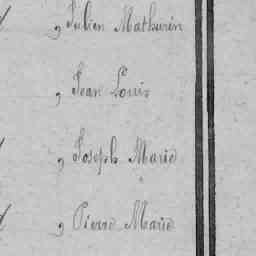 , Julien Mathurin
, Jean Louis
, Joseph Marie
, Pierre Marie